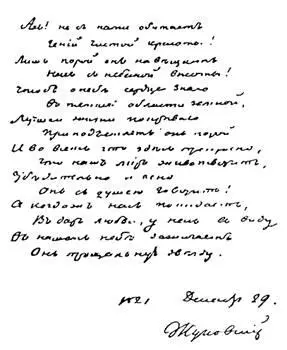 Ах! не съ нами обитаетъ
Геній чистой красоты!
Лишь порой онъ навѣщаетъ
Насъ съ небесной высоты!
Чтобъ о небѣ сердце знало
Въ темной области земной,
Лучшей жизни покрывало
Приподъемлетъ онъ порой
И во всемъ что здѣсь прекрасно,
Что нашъ міръ животворитъ,
Убѣдительно и ясно
Онъ съ душею говоритъ!
А когда насъ покидаетъ,
Въ даръ любви, у насъ въ виду
Въ нашемъ небѣ зажигаетъ
Онъ прощальную звѣзду.
29.
Жуковскій